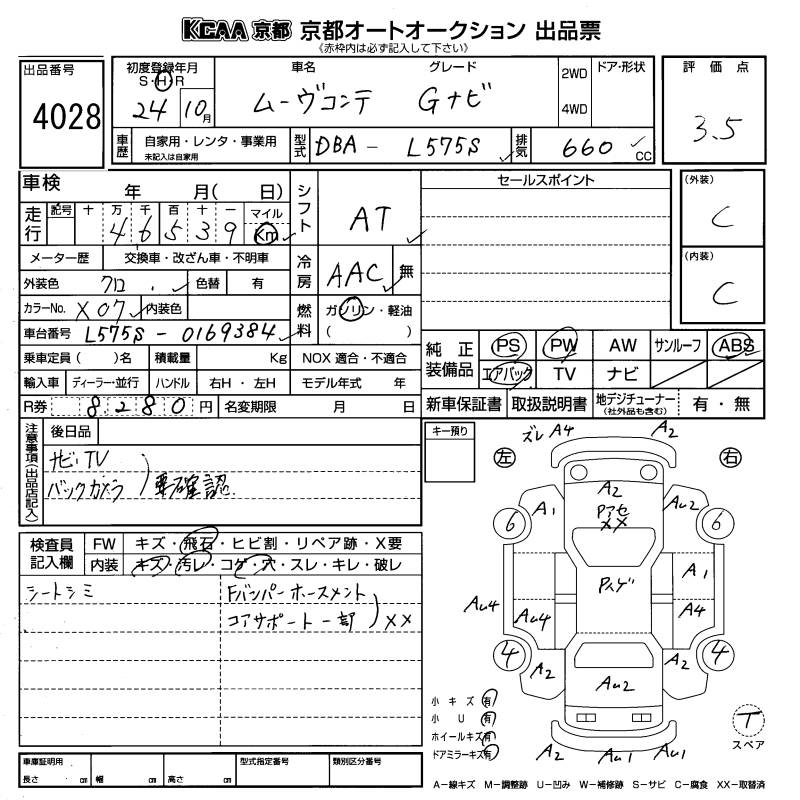 KCAA 京都 京都オートオークション 出品票
《赤枠内は必ず記入して下さい》
出品番号
4028
初度登録年月
S・H・R
24 10月
車名 グレード
ムーヴコンテ Gナビ
2WD
4WD
ドア・形状
評価点
3.5
車歴
自家用・レンタ・事業用
未記入は自家用
型式
DBA - L575S
排気
660 cc
車検 年 月( 日)
走行
記号 十 万 千 百 十 一 マイル
4 6 5 3 9 Km
シフト
AT
セールスポイント
(外装)
C
(内装)
C
メーター歴 交換車・改ざん車・不明車
冷房
AAC 無
外装色 クロ 色替 有
カラーNo. X07 内装色
燃料
ガソリン・軽油
( )
車台番号 L575S - 0169384
乗車定員( )名 積載量 Kg NOX 適合・不適合
輸入車 ディーラー・並行 ハンドル 右H・左H モデル年式 年
R券 8280円 名変期限 月 日
純正装備品
PS PW AW サンルーフ ABS
エアバック TV ナビ
新車保証書 取扱説明書 地デジチューナー(社外品も含む) 有・無
注意事項(出品店記入)
後日品
ナビ・TV
バックカメラ 要確認
キー預り
検査員記入欄
FW キズ・飛石・ヒビ割・リペア跡・X要
内装 キズ・汚レ・コゲ・穴・スレ・キレ・破レ
シートシミ
Fバンパーホースメント
コアサポート一部 XX
左 右
ズレ A4 A2
A2
A1 Au2
6 6
XX
A1
Au4 Au4 A4
4 4
A2 A2
Au2
A2 Au1 Au1
小キズ 有
小U 有
ホイールキズ 有
ドアミラーキズ 有
T
スペア
車庫証明用
長さ cm 幅 cm 高さ cm
型式指定番号
類別区分番号
A-線キズ M-調整跡 U-凹み W-補修跡 S-サビ C-腐食 XX-取替済